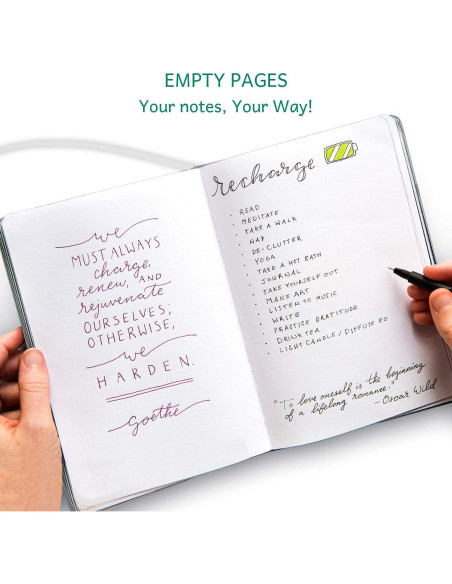 EMPTY PAGES
Your notes, Your Way!
we
MUST ALWAYS
charge,
renew, AND
rejuvenate
OURSELVES;
OTHERWISE,
we
HARDEN.
Goethe
recharge
· READ
· MEDITATE
· TAKE A WALK
· NAP
· DE-CLUTTER
· YOGA
· TAKE A HOT BATH
· JOURNAL
· TAKE YOURSELF OUT
· MAKE ART
· LISTEN TO MUSIC
· WRITE
· PRACTISE GRATITUDE
· DRINK TEA
· LIGHT CANDLE / DIFFUSE EO
"To love oneself is the beginning
of a lifelong romance."
- Oscar Wild